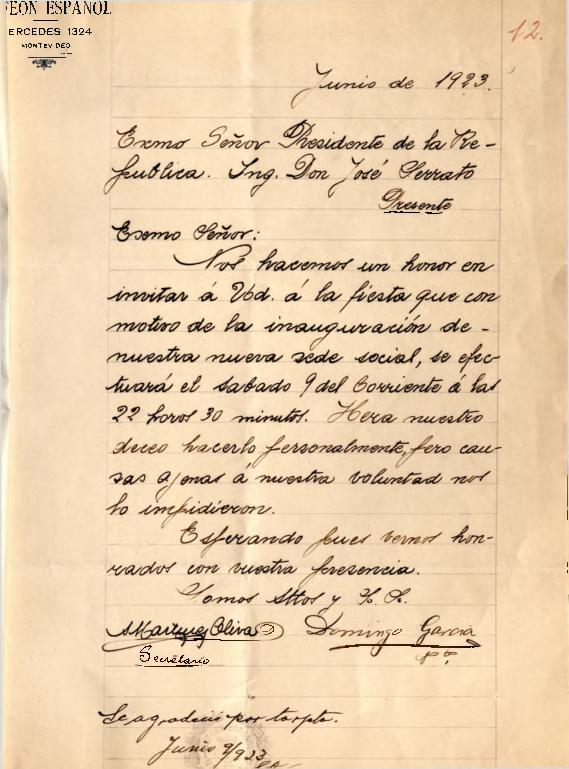 FEON ESPAÑOL
ERCEDES 1324
MONTEVIDEO
12.
Junio de 1923.
Exmo Señor Presidente de la Re-
publica. Ing. Don José Serrato
Presente
Exemo Señor:
Nos hacemos un honor en
invitar á Vd. á la fiesta que con
motivo de la inauguración de-
nuestra nueva sede social, se efec-
tuará el sabado 9 del Corriente á las
22 horos 30 minutos. Hera nuestro
deceo hacerlo personalmente, pero cau-
sas agenas á nuestra voluntad nos
lo impidieron.
Esperando pues vernos hon-
rados con vuestra presencia.
Somos Attos y S. S.
Martinez Oliva Domingo Garcia
Secretario
Se agradeció por tarpta.
Junio 9/923